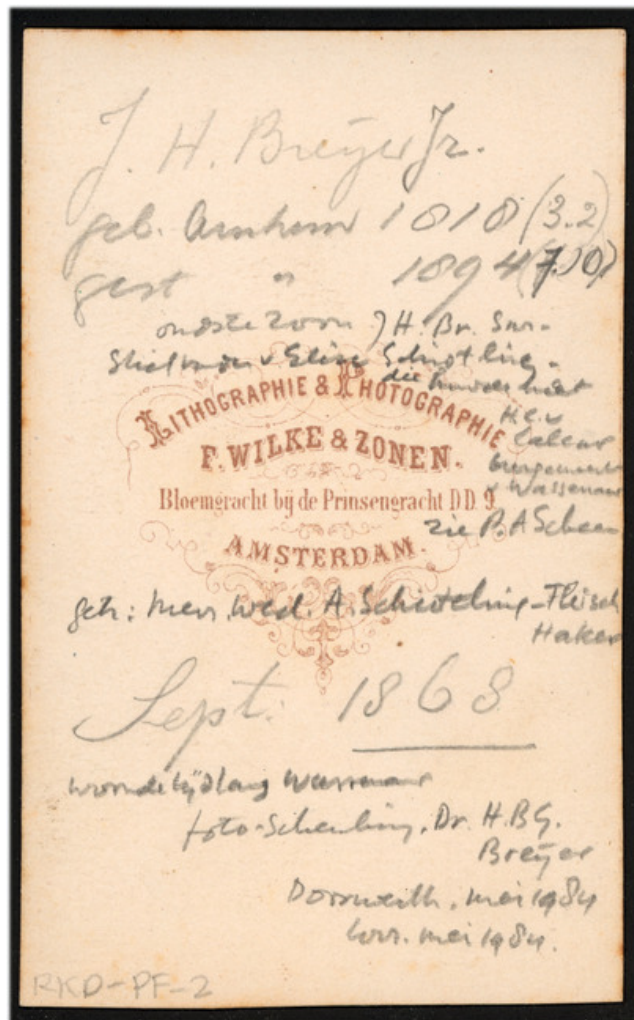 J. H. Breÿer Jr.
geb. Arnhem 1818 (3.2)
gest " 1894 (7.10)
oudste zoon J H. Br. Snr.
die huwde met
H.C. v
Calcar
burgemeester
v Wassenaar
LITHOGRAPHIE & PHOTOGRAPHIE
F. WILKE & ZONEN.
Bloemgracht bij de Prinsengracht DD. 9
zie P. A Scheen
AMSTERDAM.
geh: mevr. wed. A. Schoteling-Fleisch
Haker
Sept. 1868
woonde tijdlang Wassenaar
foto-schenking. Dr. H.B.G.
Breÿer
Doorwerth. mei 1984
corr. mei 1984.
RKD-PF-2